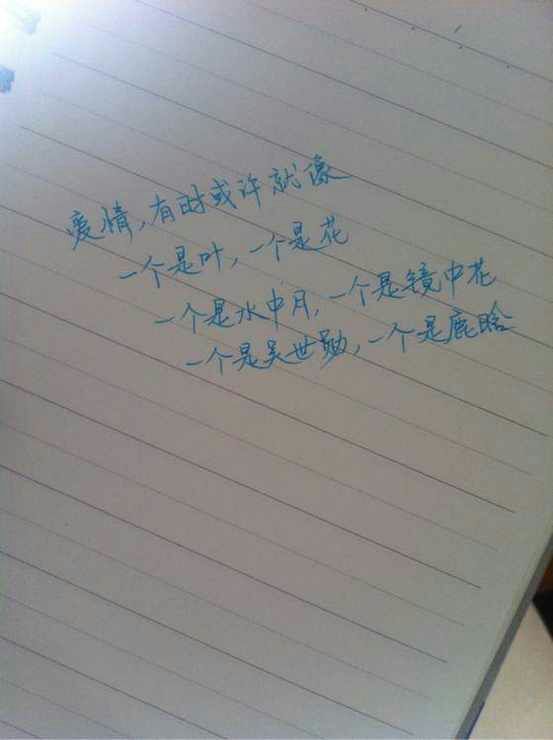 爱情,有时或许就像
一个是叶,一个是花
一个是水中月,一个是镜中花
一个是吴世勋,一个是鹿晗